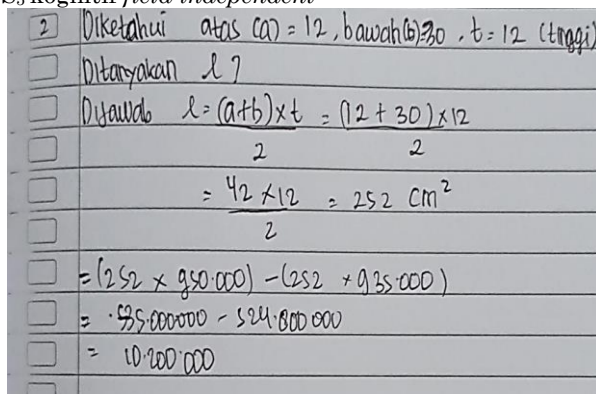 S3 kognitif field independent
2 Diketahui atas (a) = 12, bawah(b)=30, t = 12 (tinggi)
Ditanyakan l ?
Dijawab l = (a+b)×t / 2 = (12 + 30)×12 / 2
= 42 × 12 / 2 = 252 cm²
= (252 × 950.000) - (252 × 935.000)
= 535.000000 - 524.800 000
= 10.200.000